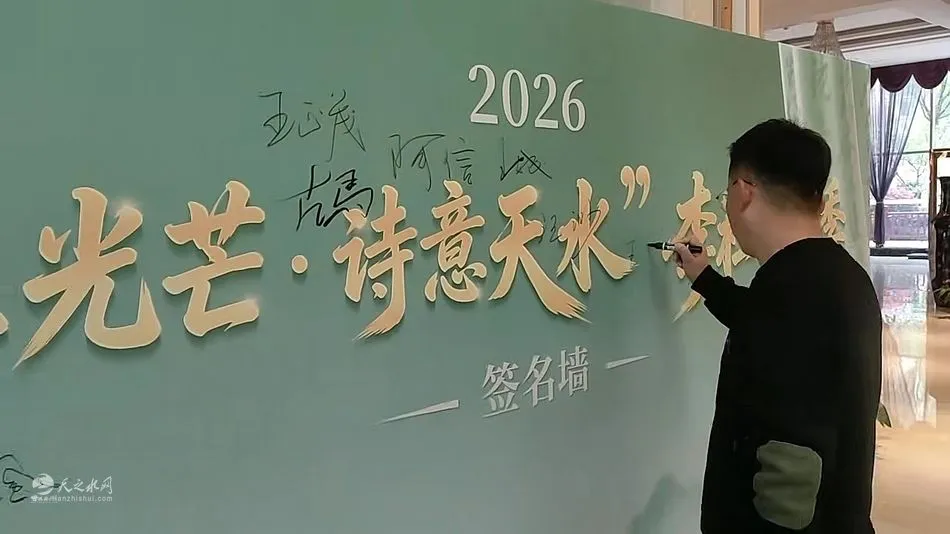 2026
王正茂
阿信
古馬
光芒·诗意天水”李
签名墙
天之水网
www.tianzhishui.com